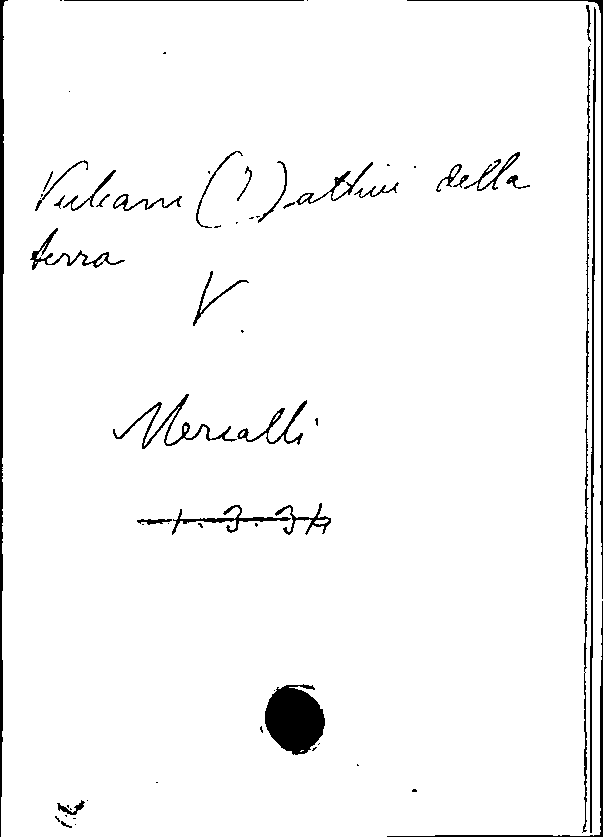 Vulcani (I) attivi della
terra
V.
Mercalli
1.3.34